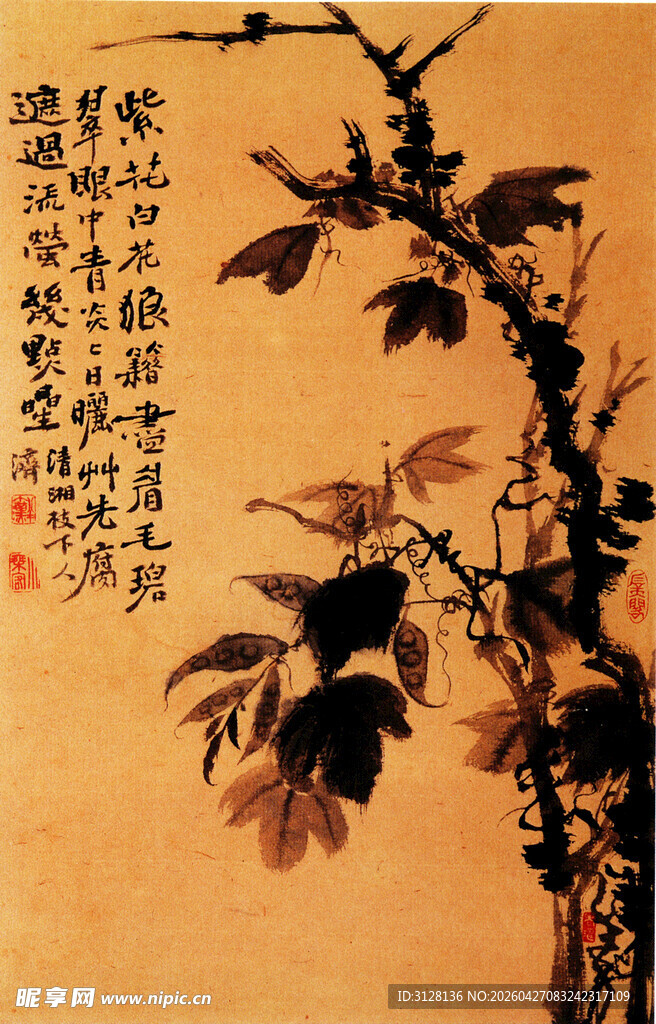 紫花白花狼籍盡眉毛碧
翠眼中青炎々日曬艸先腐
遮過流螢幾點曐
清湘枝下人
濟
昵享网 www.nipic.cn
ID:3128136 NO:20260427083242317109